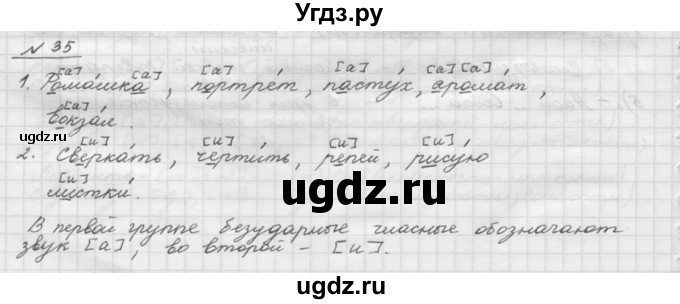 Угдз.ру
№ 35
[а] [а] [а] [а] [а] [а]
1. Ромашка, портрет, пастух, аромат,
[а]
вокзал.
[и] [и] [и] [и]
2. Сверкать, чертить, репей, рисую
[и]
листки.
В первой группе безударные гласные обозначают
звук [а], во второй – [и].
ugdz.ru
ugdz.ru
ugdz.ru
ugdz.ru
ugdz.ru
ugdz.ru